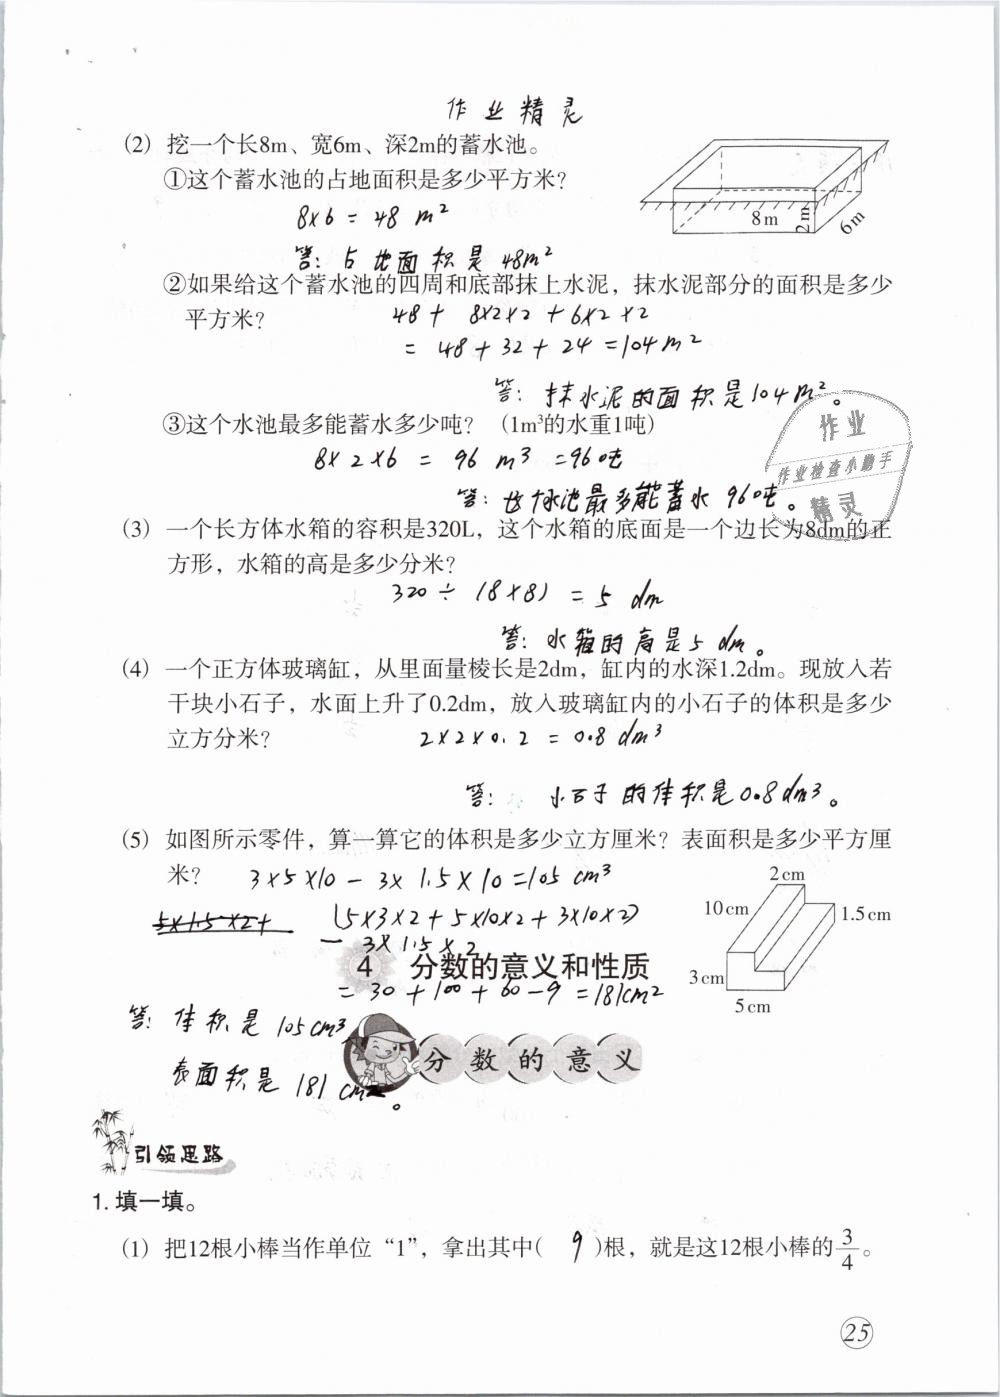 作业精灵
(2) 挖一个长8m、宽6m、深2m的蓄水池。
①这个蓄水池的占地面积是多少平方米?
8×6 = 48 m²
8m
2m
6m
答: 占地面积是 48m²
②如果给这个蓄水池的四周和底部抹上水泥，抹水泥部分的面积是多少
平方米?
48 + 8×2×2 + 6×2×2
= 48 + 32 + 24 = 104 m²
答: 抹水泥的面积是104 m²。
③这个水池最多能蓄水多少吨? (1m³的水重1吨)
8×2×6 = 96 m³ = 96吨
答: 这个水池最多能蓄水 96吨。
作业
作业检查小助手
精灵
(3) 一个长方体水箱的容积是320L，这个水箱的底面是一个边长为8dm的正
方形，水箱的高是多少分米?
320 ÷ (8×8) = 5 dm
答: 水箱的高是5 dm。
(4) 一个正方体玻璃缸，从里面量棱长是2dm，缸内的水深1.2dm。现放入若
干块小石子，水面上升了0.2dm，放入玻璃缸内的小石子的体积是多少
立方分米?
2×2×0.2 = 0.8 dm³
答: 小石子的体积是0.8dm³。
(5) 如图所示零件，算一算它的体积是多少立方厘米? 表面积是多少平方厘
米?
3×5×10 - 3×1.5×10 = 105 cm³
2cm
10cm
1.5cm
3cm
5cm
5×1.5×2+
(5×3×2 + 5×10×2 + 3×10×2)
- 3×1.5×2
4 分数的意义和性质
= 30 + 100 + 60 - 9 = 181cm²
答: 体积是 105cm³
表面积是 181 cm²。
分数的意义
引领思路
1. 填一填。
(1) 把12根小棒当作单位“1”，拿出其中( 9 )根，就是这12根小棒的3/4。
25